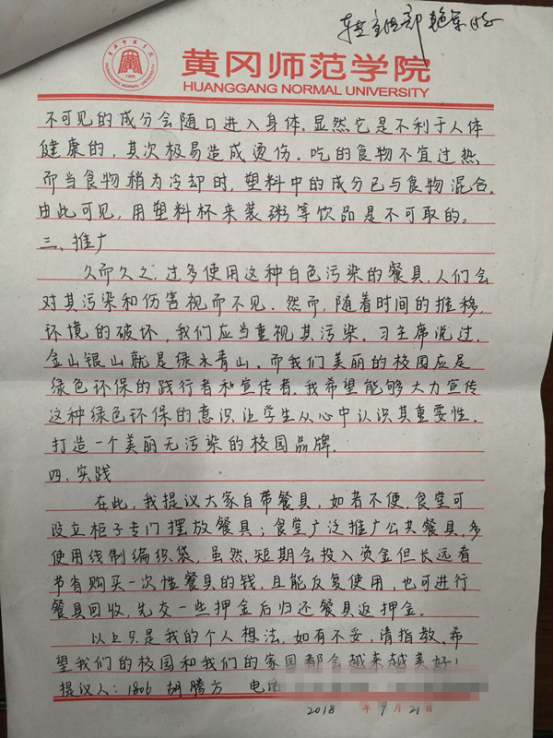 黄冈师范学院
HUANGGANG NORMAL UNIVERSITY
不可见的成分会随口进入身体,显然它是不利于人体
健康的,其次极易造成烫伤。吃的食物不宜过热
而当食物稍为冷却时,塑料中的成分已与食物混合。
由此可见,用塑料杯来装粥等饮品是不可取的。
三、推广
久而久之,过多使用这种白色污染的餐具,人们会
对其污染和伤害视而不见。然而,随着时间的推移,
环境的破坏,我们应当重视其污染。习主席说过,
金山银山就是绿水青山。而我们美丽的校园应是
绿色环保的践行者和宣传者,我希望能够大力宣传
这种绿色环保的意识,让学生从心中认识其重要性。
打造一个美丽无污染的校园品牌。
四、实践
在此,我提议大家自带餐具,如若不便,食堂可
设立柜子专门摆放餐具;食堂广泛推广公共餐具,多
使用线制编织袋,虽然,短期会投入资金但长远看
节省购买一次性餐具的钱,且能反复使用,也可进行
餐具回收,先交一些押金后归还餐具返押金。
以上只是我的个人想法,如有不妥,请指教。希
望我们的校园和我们的家园都会越来越美好!
提议人:1806 胡腾方 电话
2018 年 9 月 21 日